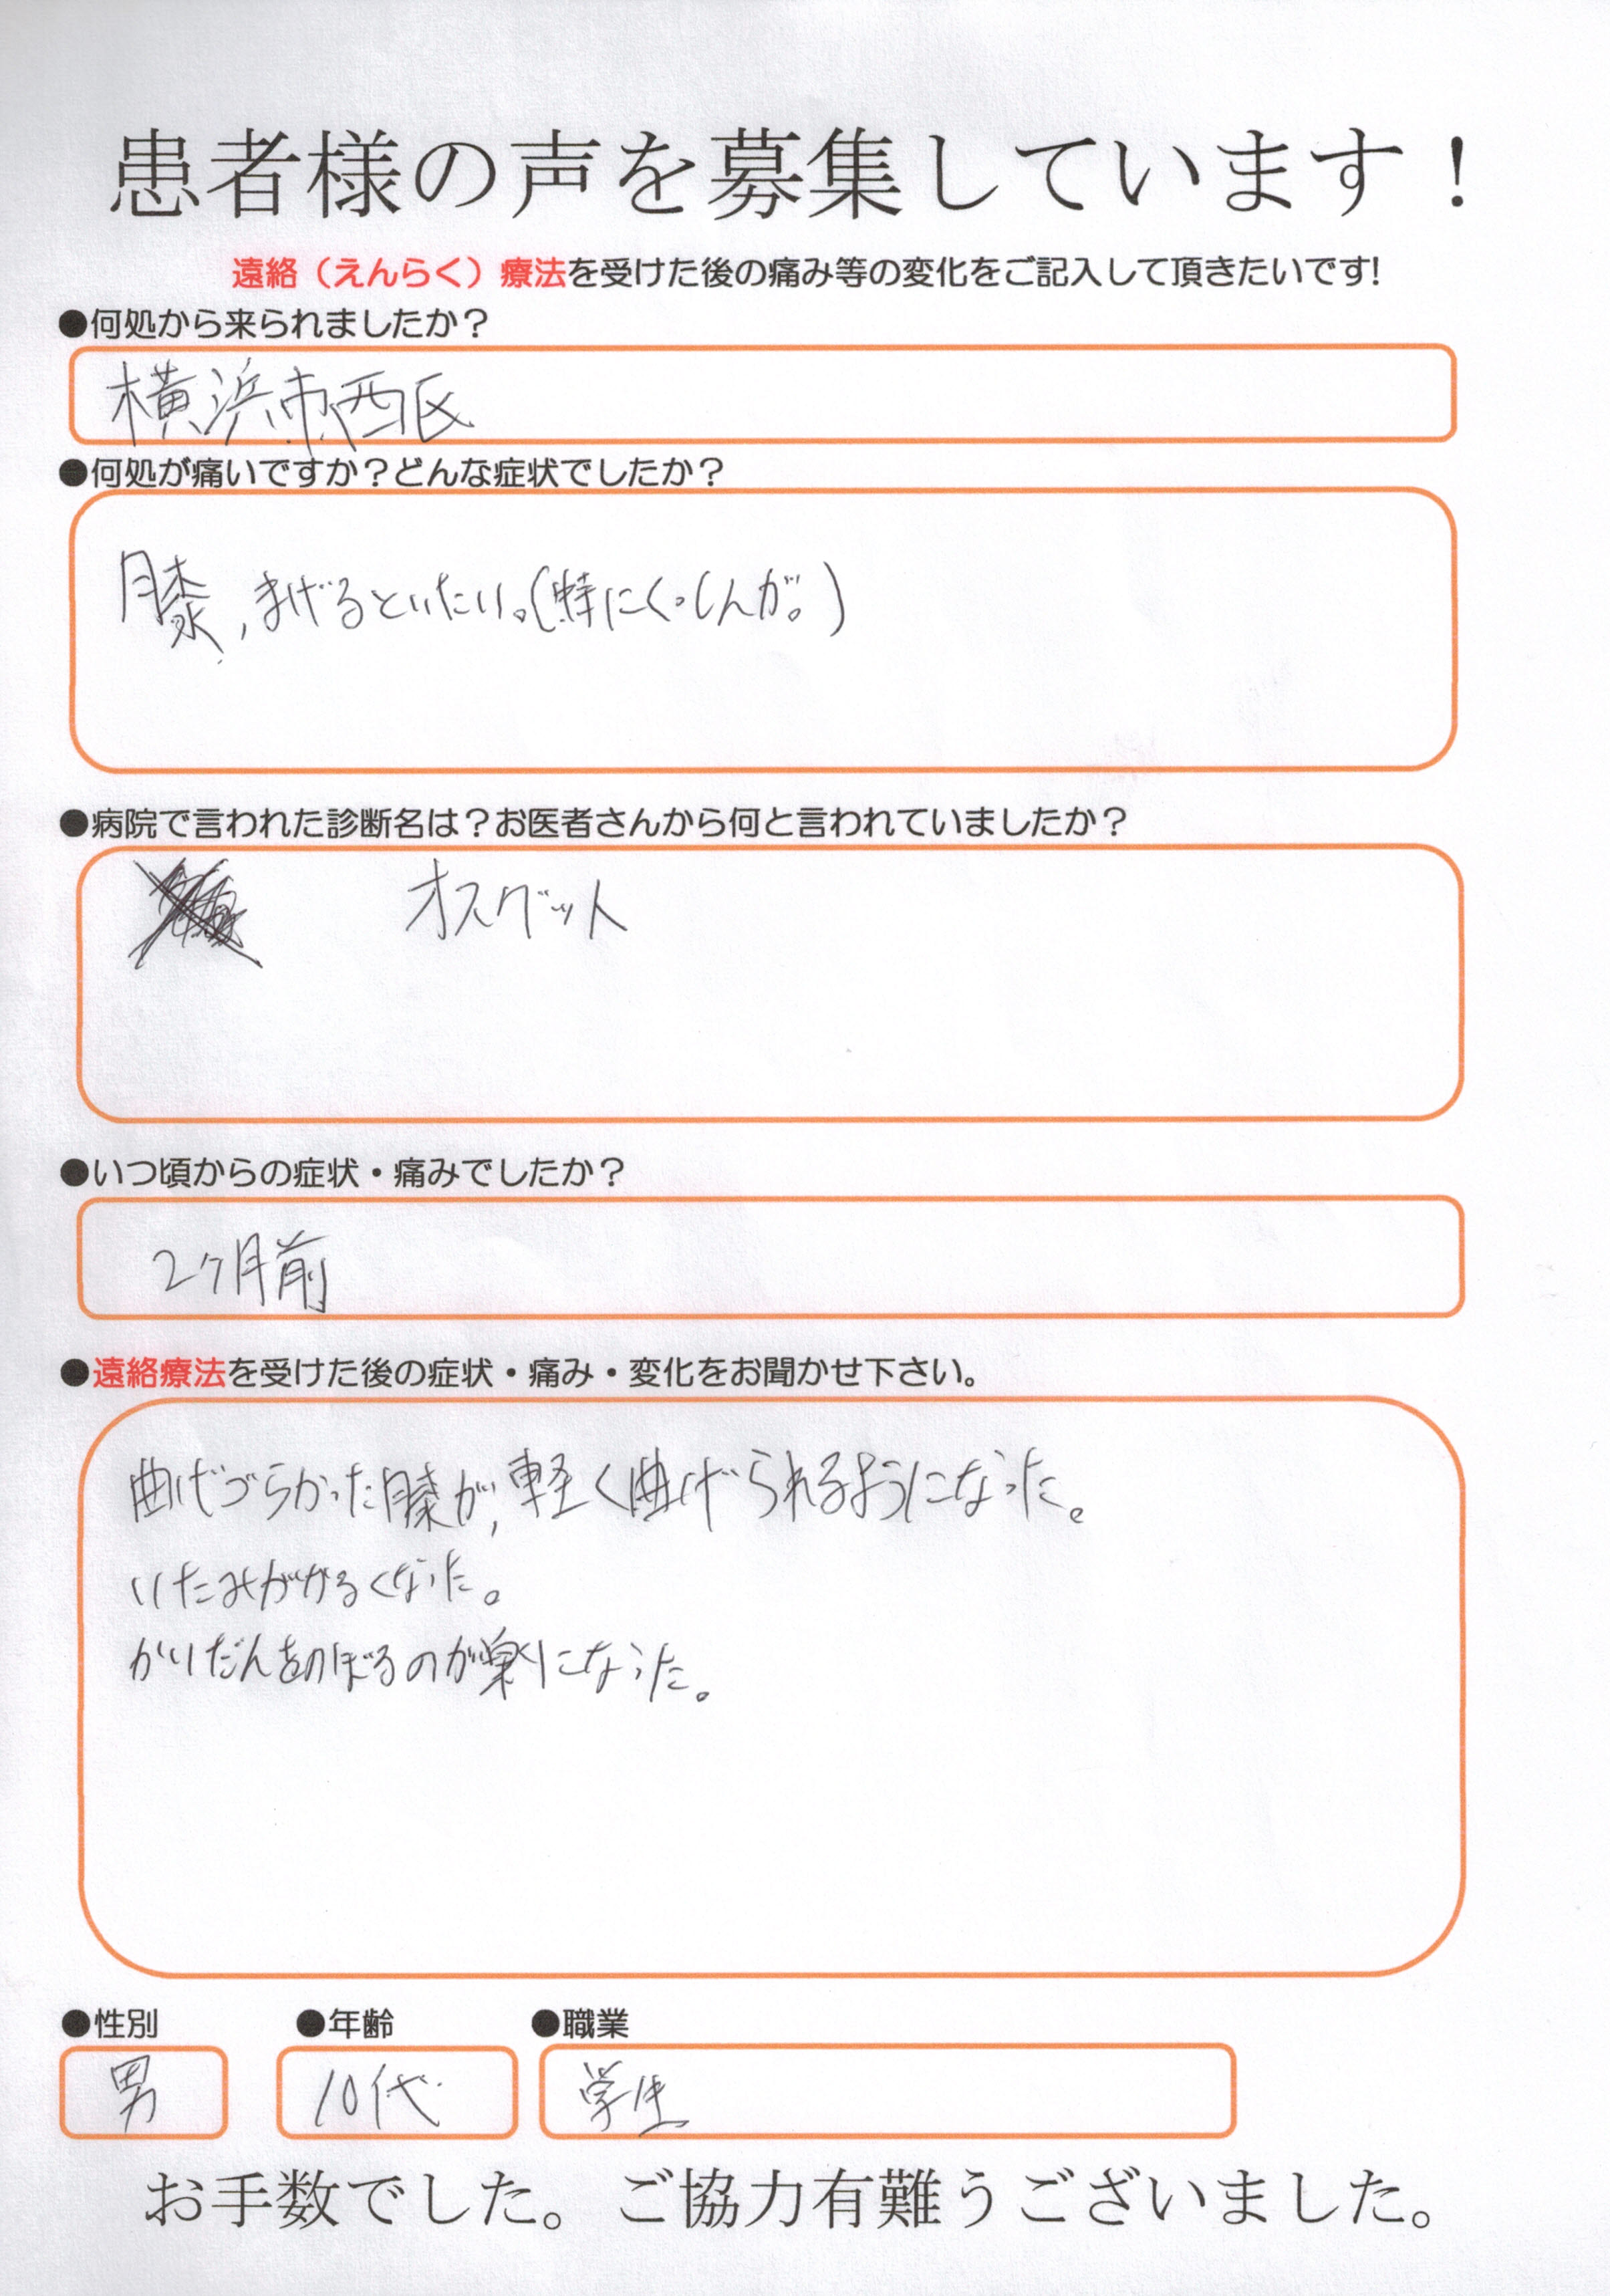 患者様の声を募集しています！
遠絡（えんらく）療法を受けた後の痛み等の変化をご記入して頂きたいです!
●何処から来られましたか？
横浜市西区
●何処が痛いですか？どんな症状でしたか？
膝,まげるといたい。(特にくっしんが。)
●病院で言われた診断名は？お医者さんから何と言われていましたか？
オスグット
●いつ頃からの症状・痛みでしたか？
2ヶ月前
●遠絡療法を受けた後の症状・痛み・変化をお聞かせ下さい。
曲げづらかった膝が,軽く曲げられるようになった。
いたみがかるくなった。
かいだんをのぼるのが楽になった。
●性別 ●年齢 ●職業
男 10代 学生
お手数でした。ご協力有難うございました。